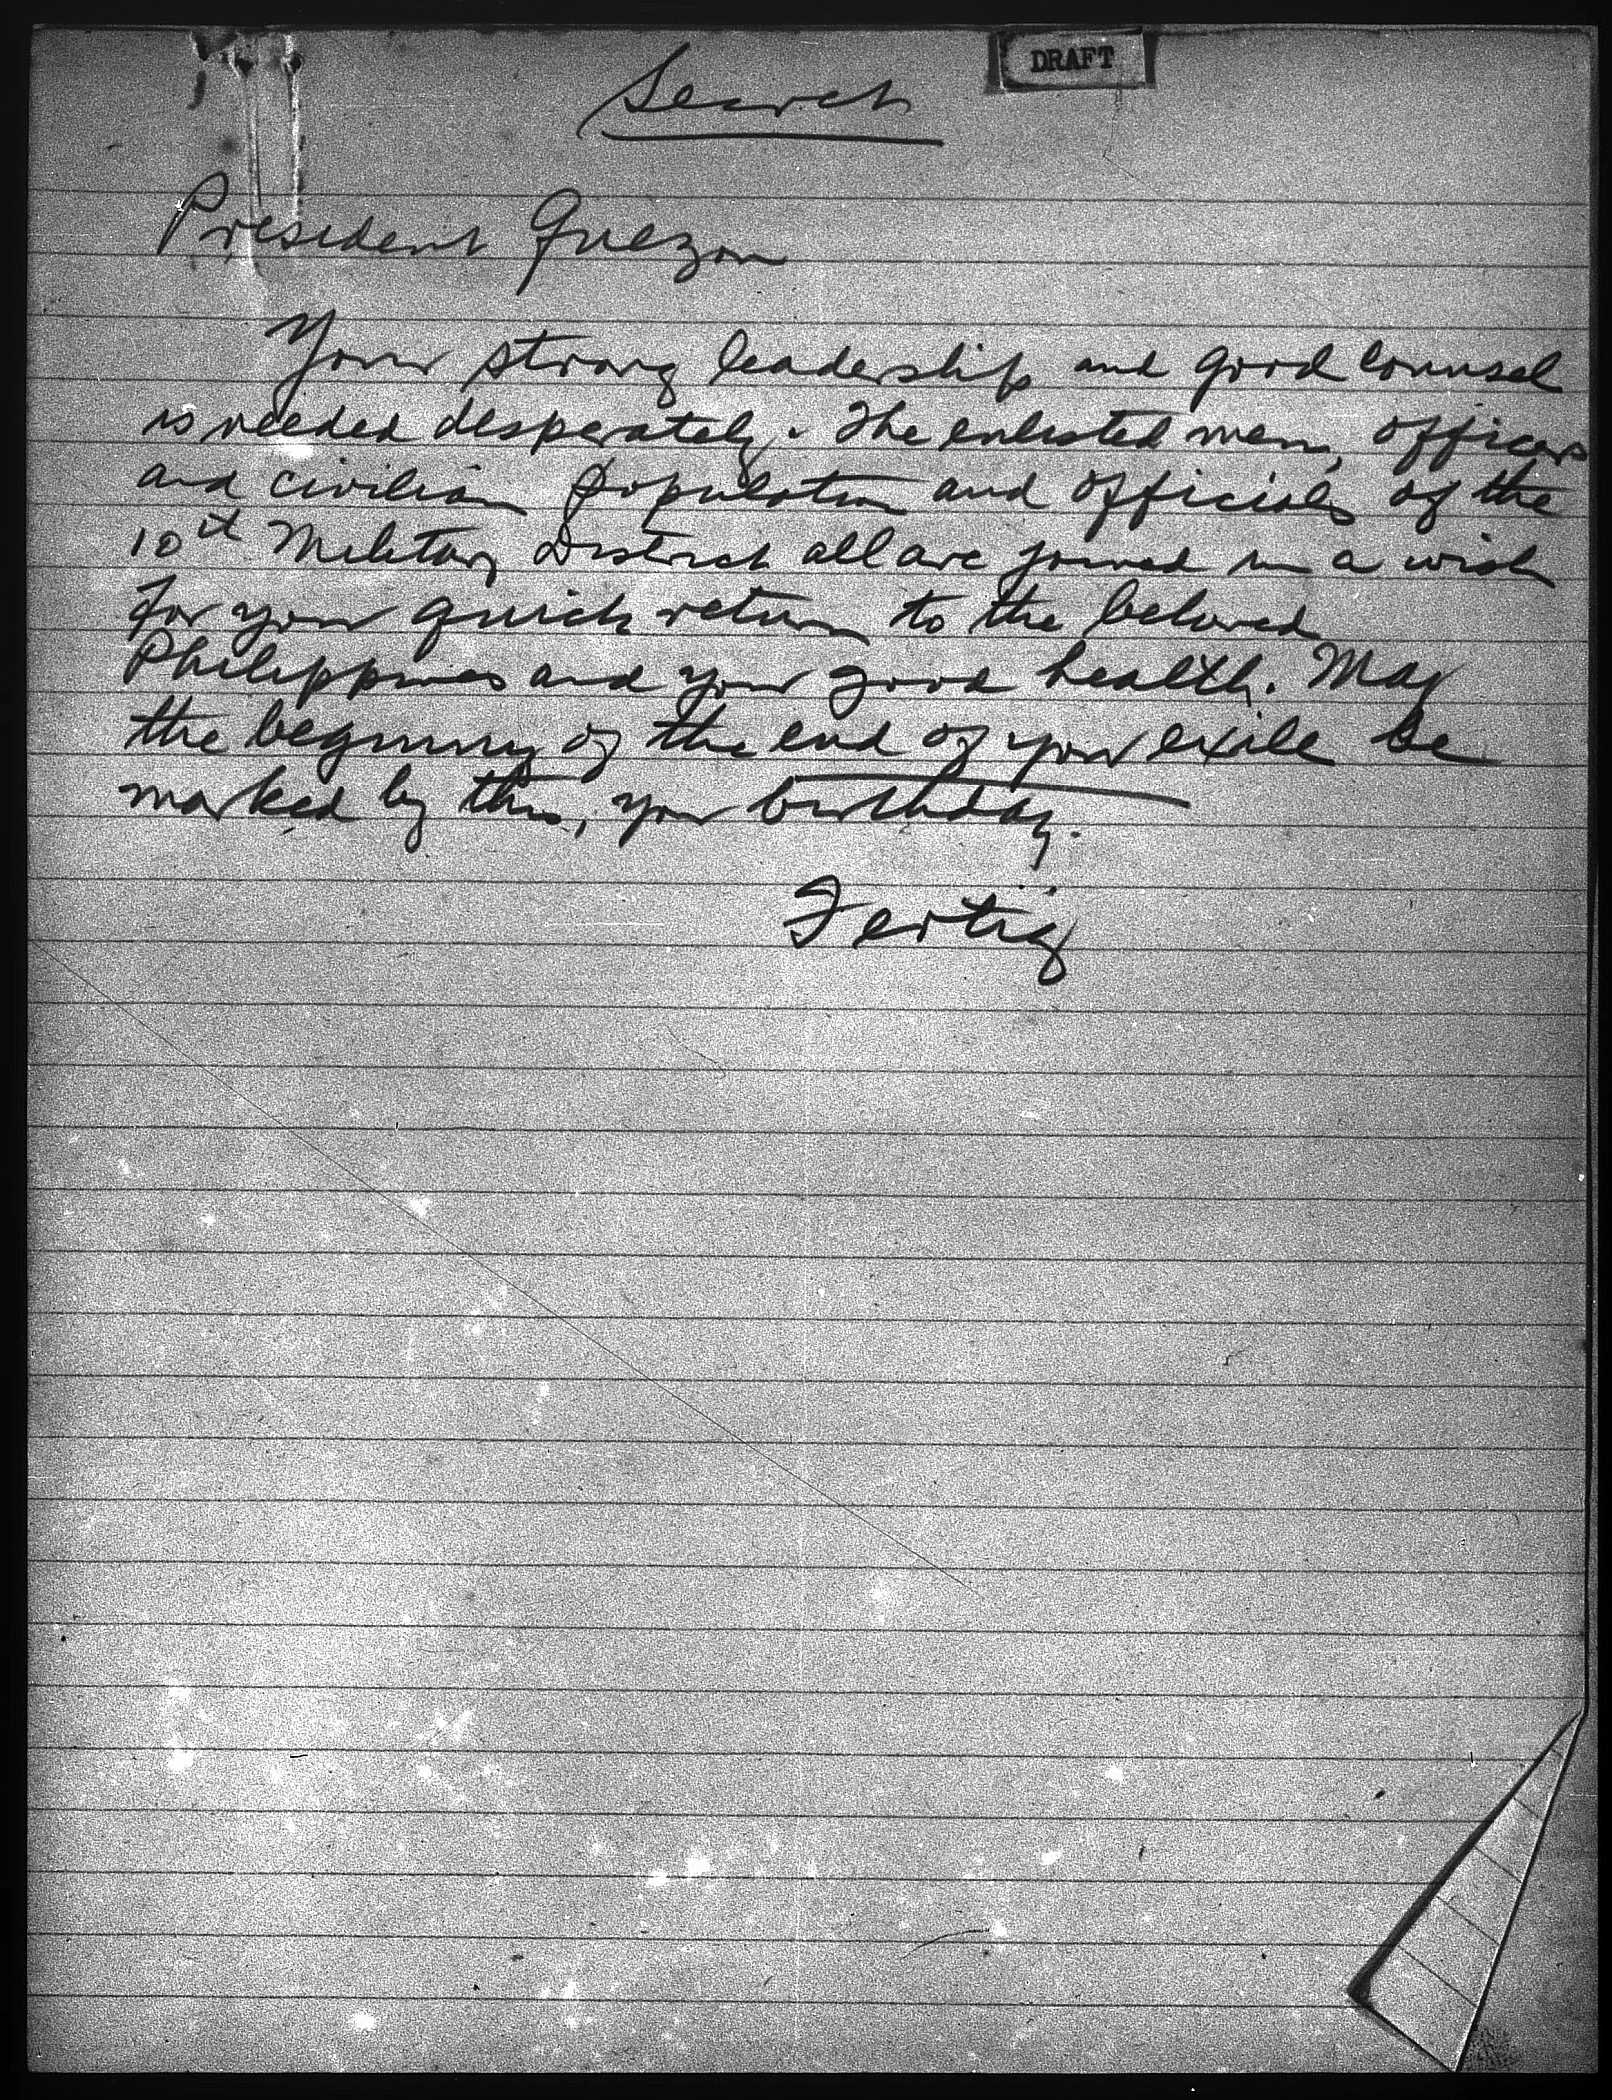 DRAFT
Search
President Quezon
Your strong leadership and good counsel
is needed desperately. The enlisted men, officers
and civilian population and officials of the
10th Military District all are joined in a wish
for your quick return to the beloved
Philippines and your good health. May
the beginning of the end of your exile be
marked by this, your birthday.
Fertig